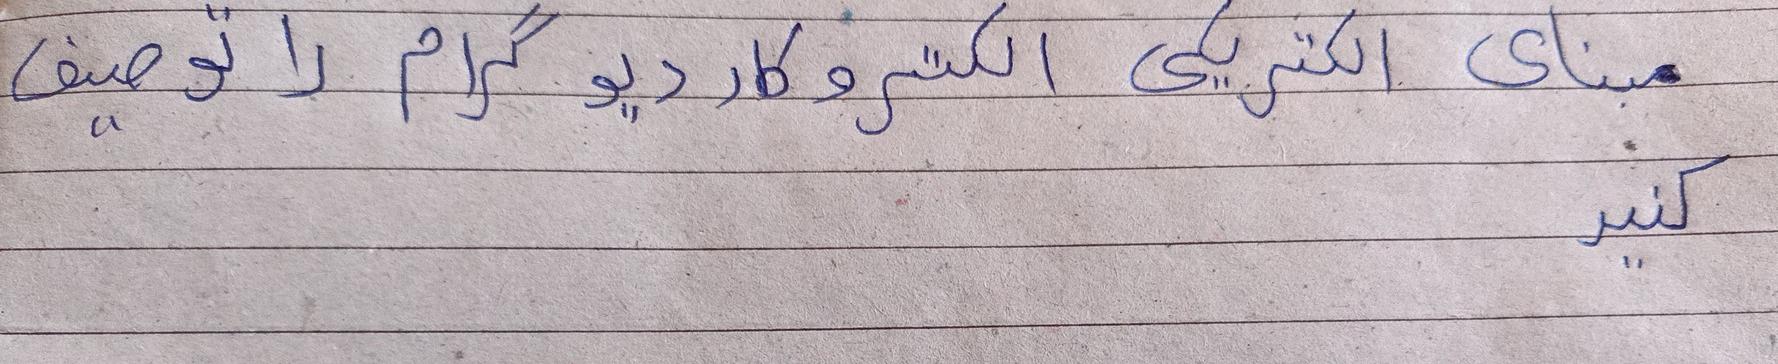 مبنای الکتریکی الکتروکاردیوگرام را توصیف
کنید